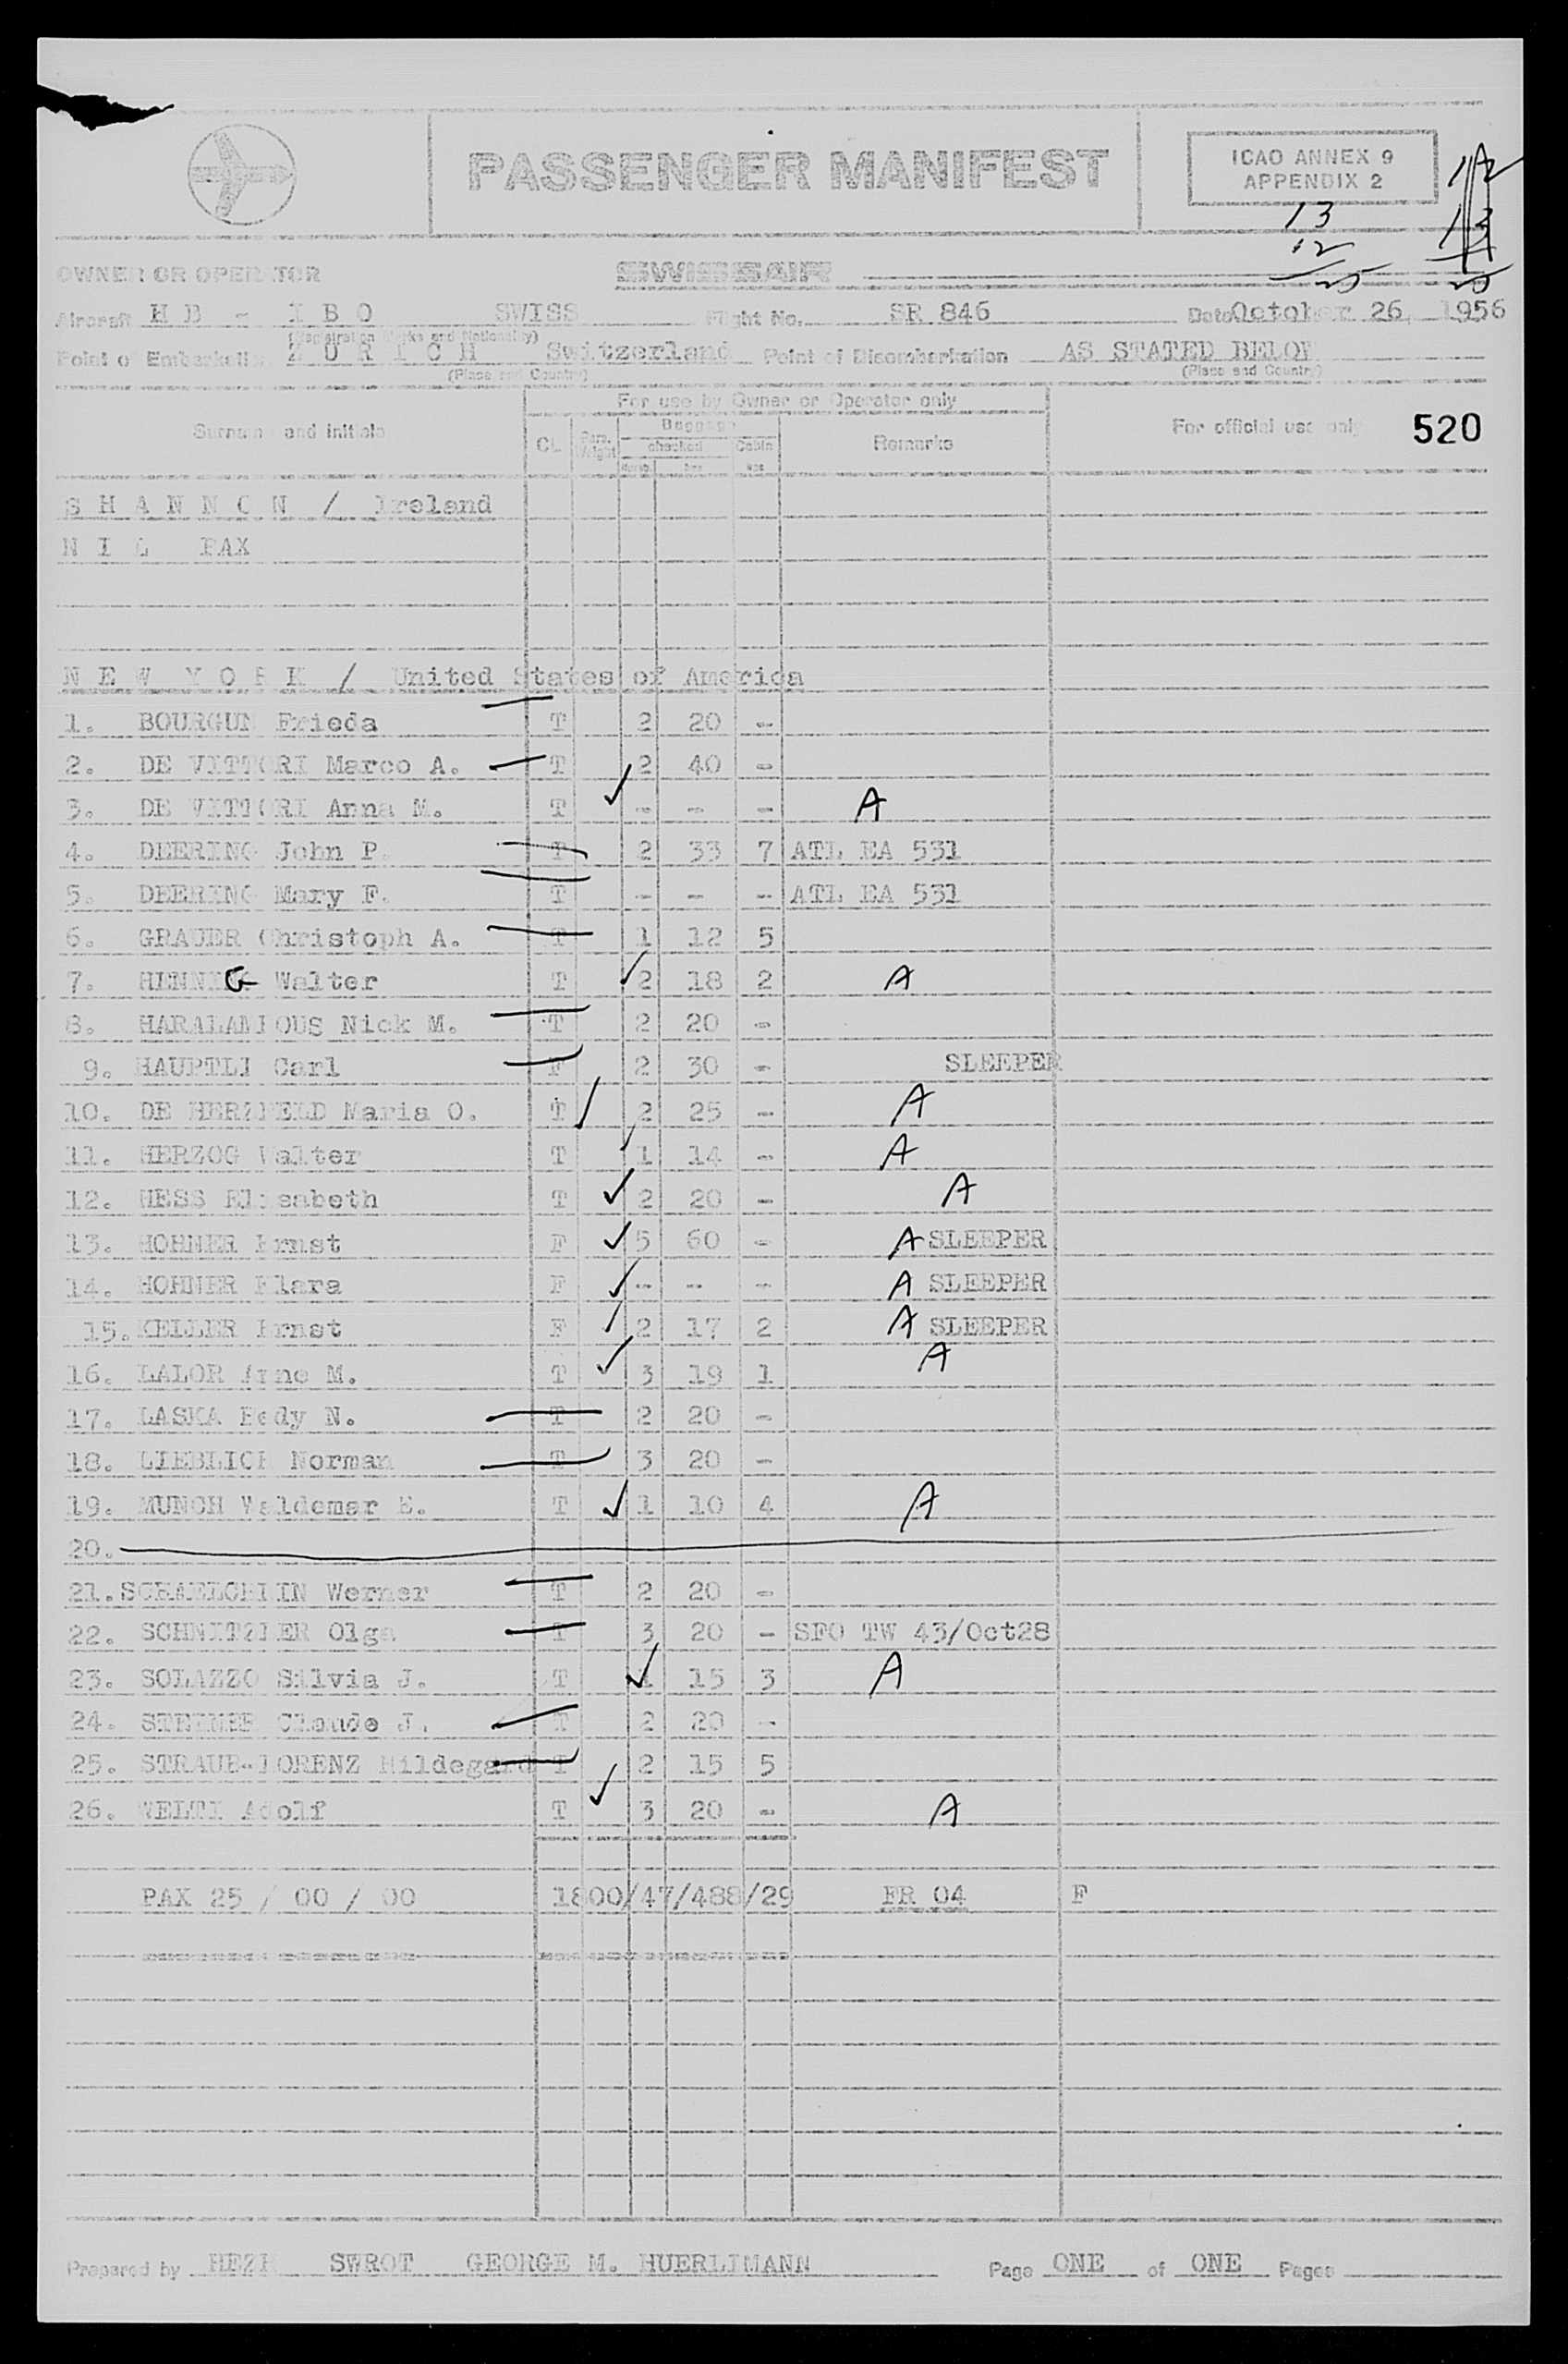 PASSENGER MANIFEST
ICAO ANNEX 9
APPENDIX 2
13
12
25
OWNER OR OPERATOR SWISSAIR
Aircraft HB - IBO SWISS Flight No. SR 846 Date October 26, 1956
(Registration Marks and Nationality)
Point of Embarkation ZURICH Switzerland Point of Disembarkation AS STATED BELOW
(Place and Country) (Place and Country)
For use by Owner or Operator only
Surname and initials CL Pass. Weight Baggage checked Cabin Remarks For official use only 520
SHANNON / Ireland
NIL PAX
NEW YORK / United States of America
1. BOURGUN Frieda T 2 20 -
2. DE VITTORI Marco A. T 2 40 -
3. DE VITTORI Anna M. T - - - A
4. DEERING John P. T 2 33 7 ATL EA 531
5. DEERING Mary F. T - - - ATL EA 531
6. GRAUER Christoph A. T 1 12 5
7. HENNING Walter T 2 18 2 A
8. HARALAMPOUS Nick M. T 2 20 -
9. HAUPTLI Carl F 2 30 - SLEEPER
10. DE HERZFELD Maria O. T 2 25 - A
11. HERZOG Walter T 1 14 - A
12. HESS Elisabeth T 2 20 - A
13. HOHNER Ernst F 5 60 - A SLEEPER
14. HOHNER Klara F - - - A SLEEPER
15. KELLER Ernst F 2 17 2 A SLEEPER
16. LALOR Anne M. T 3 19 1 A
17. LASKA Hedy N. T 2 20 -
18. LIEBLICH Norman T 3 20 -
19. MUNCH Waldemar E. T 1 10 4 A
20.
21. SCHAELCHLIN Werner T 2 20 -
22. SCHNITZLER Olga T 3 20 - SFO TW 43/Oct28
23. SOLAZZO Silvia J. T 1 15 3 A
24. STEINER Claude J. T 2 20 -
25. STRAUB-LORENZ Hildegard T 2 15 5
26. WELTI Adolf T 3 20 - A
PAX 25 / 00 / 00 1800/47/488/29 FR 04 F
Prepared by HEZI SWROT GEORGE M. HUERLIMANN Page ONE of ONE Pages